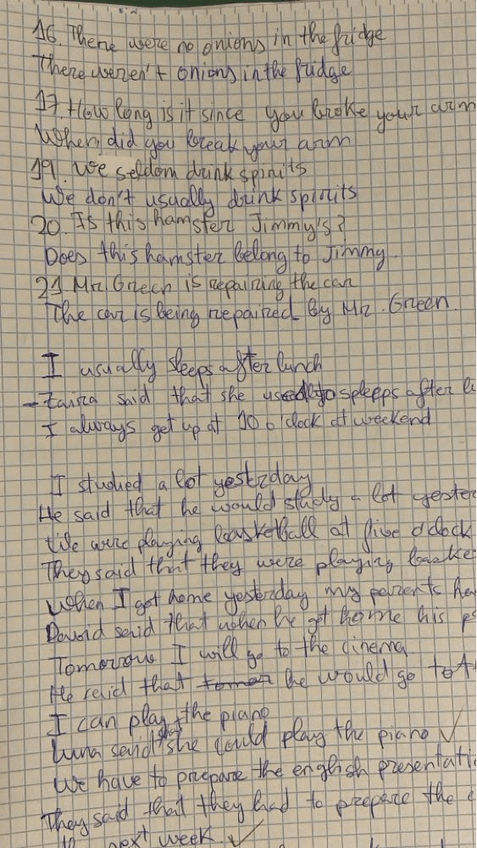 16. There were no onions in the fridge
There weren't onions in the fridge
17. How long is it since you broke your arm
When did you break your arm
19. We seldom drink spirits
We don't usually drink spirits
20. Is this hamster Jimmy's?
Does this hamster belong to Jimmy.
21 Mr. Green is repairing the car
The car is being repaired by Mr. Green.
I usually sleeps after lunch
said that she to spleeps after
I always get up at 10 o'clock at weekend
I studied a lot yesterday
He said that he would study a lot
were playing basketball at five o'clock
They said that they were playing
When I got home yesterday my parents
David said that when he got home his
Tomorrow I will go to the cinema
He said that he would go to
I can play the piano
Luna said that she could play the piano ✓
We have to prepare the english
They said that they had to prepare the
next week. ✓